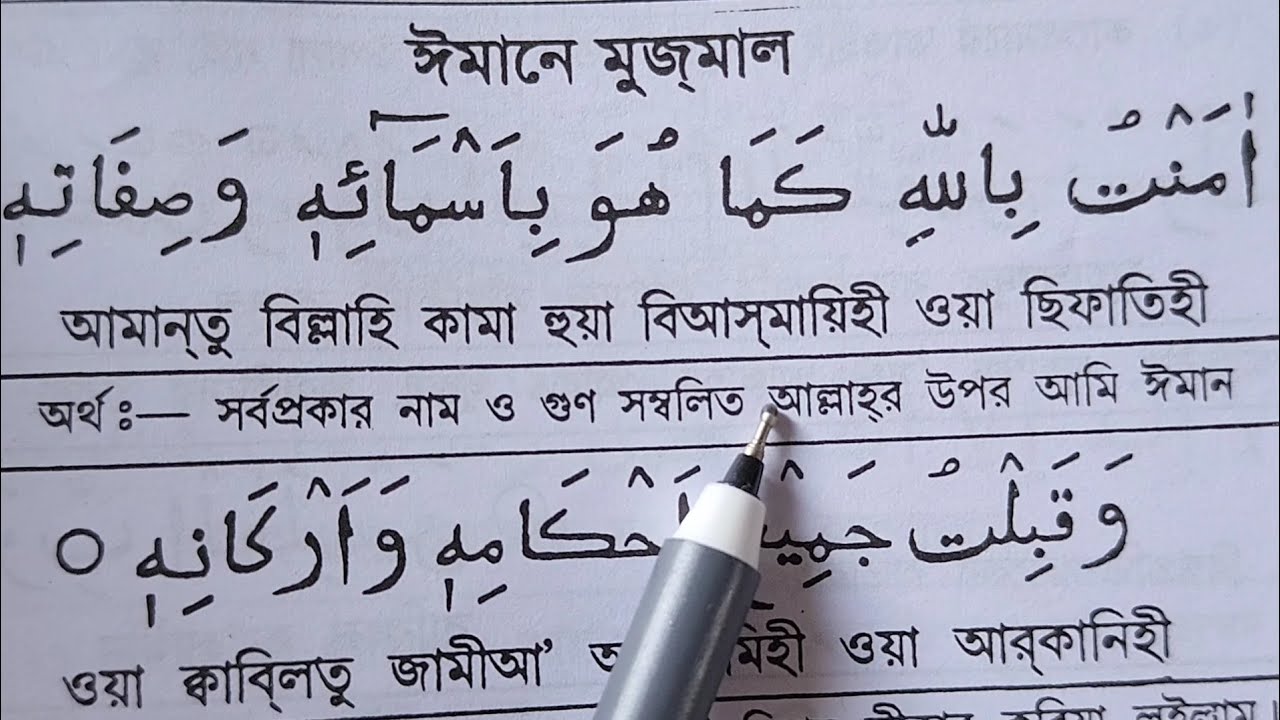 ঈমানে মুজ্‌মাল
اٰمَنْتُ بِاللّٰهِ كَمَا هُوَ بِاَسْمَآئِهٖ وَصِفَاتِهٖ
আমান্‌তু বিল্লাহি কামা হুয়া বিআস্‌মায়িহী ওয়া ছিফাতিহী
অর্থঃ— সর্বপ্রকার নাম ও গুণ সম্বলিত আল্লাহ্‌র উপর আমি ঈমান
وَقَبِلْتُ اَحْكَامِهٖ وَاَرْكَانِهٖ ○
ওয়া ক্বাবিল্‌তু জামীআ’ ওয়া আর্‌কানিহী
করিয়া লইলাম।